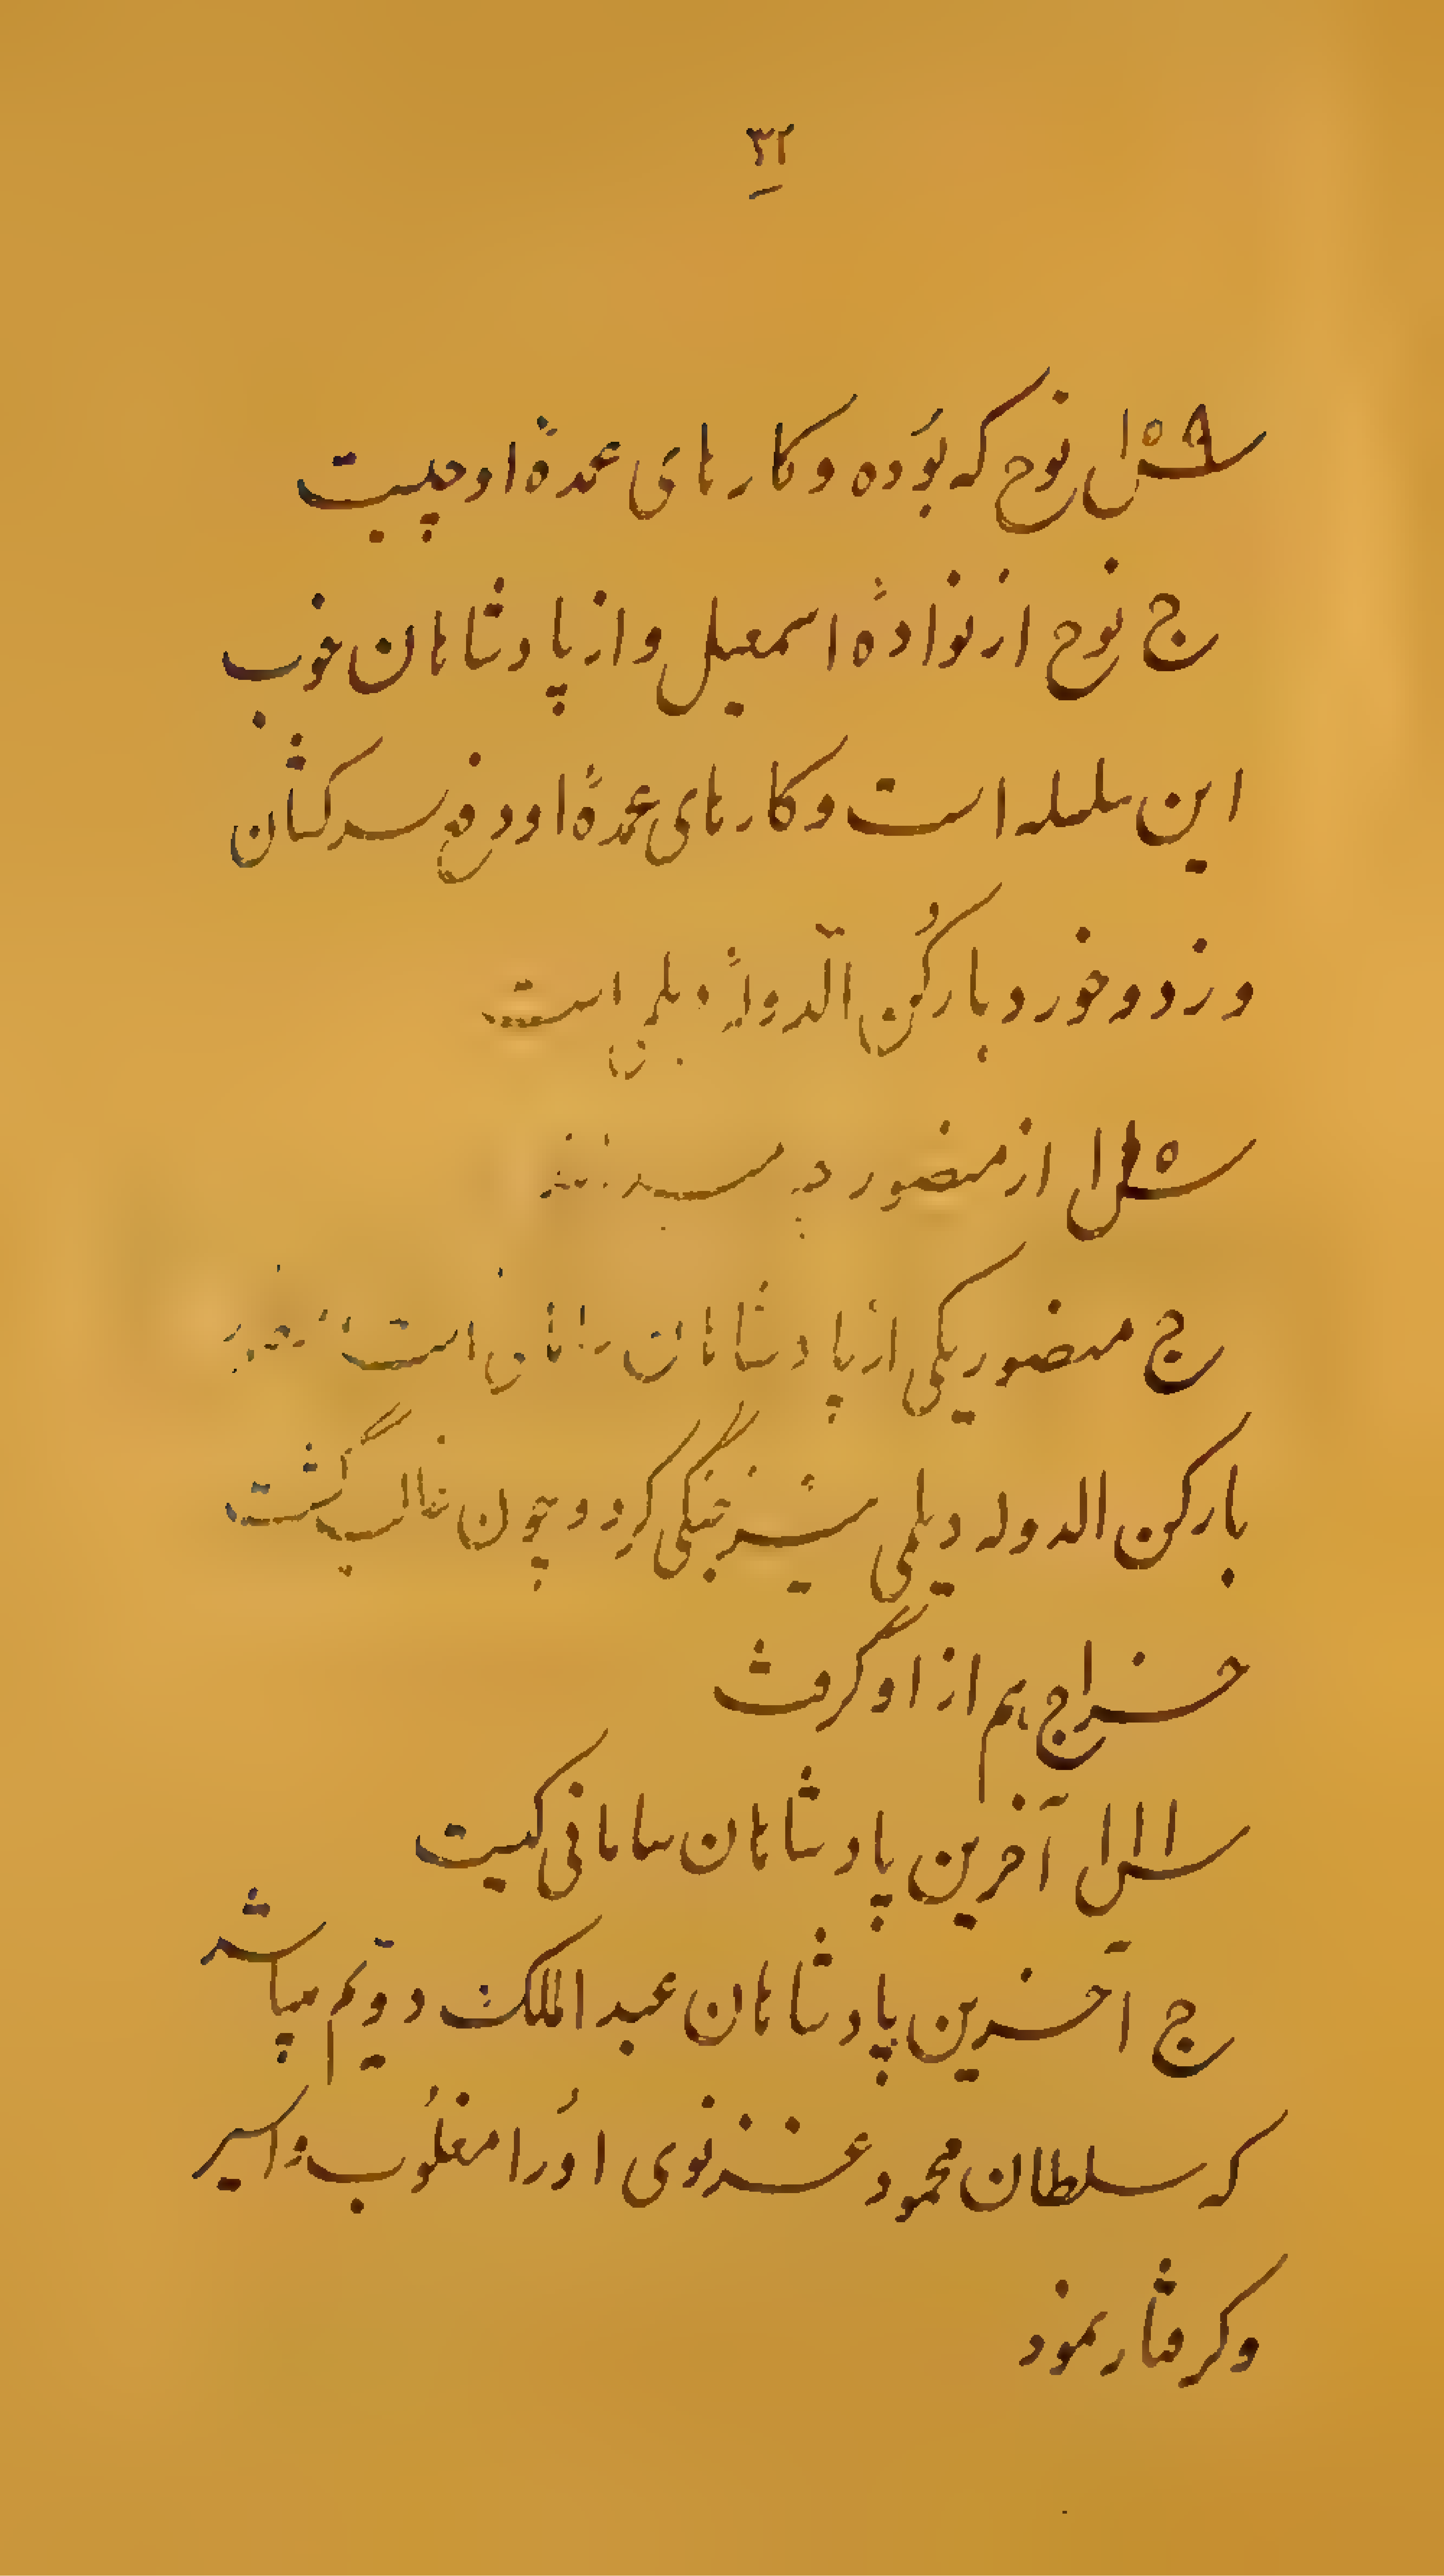 ۳۲
س۵ل نوح که بوُده و کارهای عمدهٔ او چیست
ج نوح از نوادهٔ اسمعیل و از پادشاهان خوب
این سلسله است و کارهای عمدهٔ او دفع سرکشان
و زد و خورد با رُکن الدّولهٔ دیلمی است
س ل از منصور چه میدانید
ج منصور یکی از پادشاهان است
با رکن الدوله دیلمی نیز جنگی کرد و چون غالب گشت
خراج هم از او گرفت
س۱۱ل آخرین پادشاهان سامانی کیست
ج آخرین پادشاهان عبد الملک دوّیم میباشد
که سلطان محمود غزنوی اوُرا مغلُوب و اسیر
و گرفتار نمود